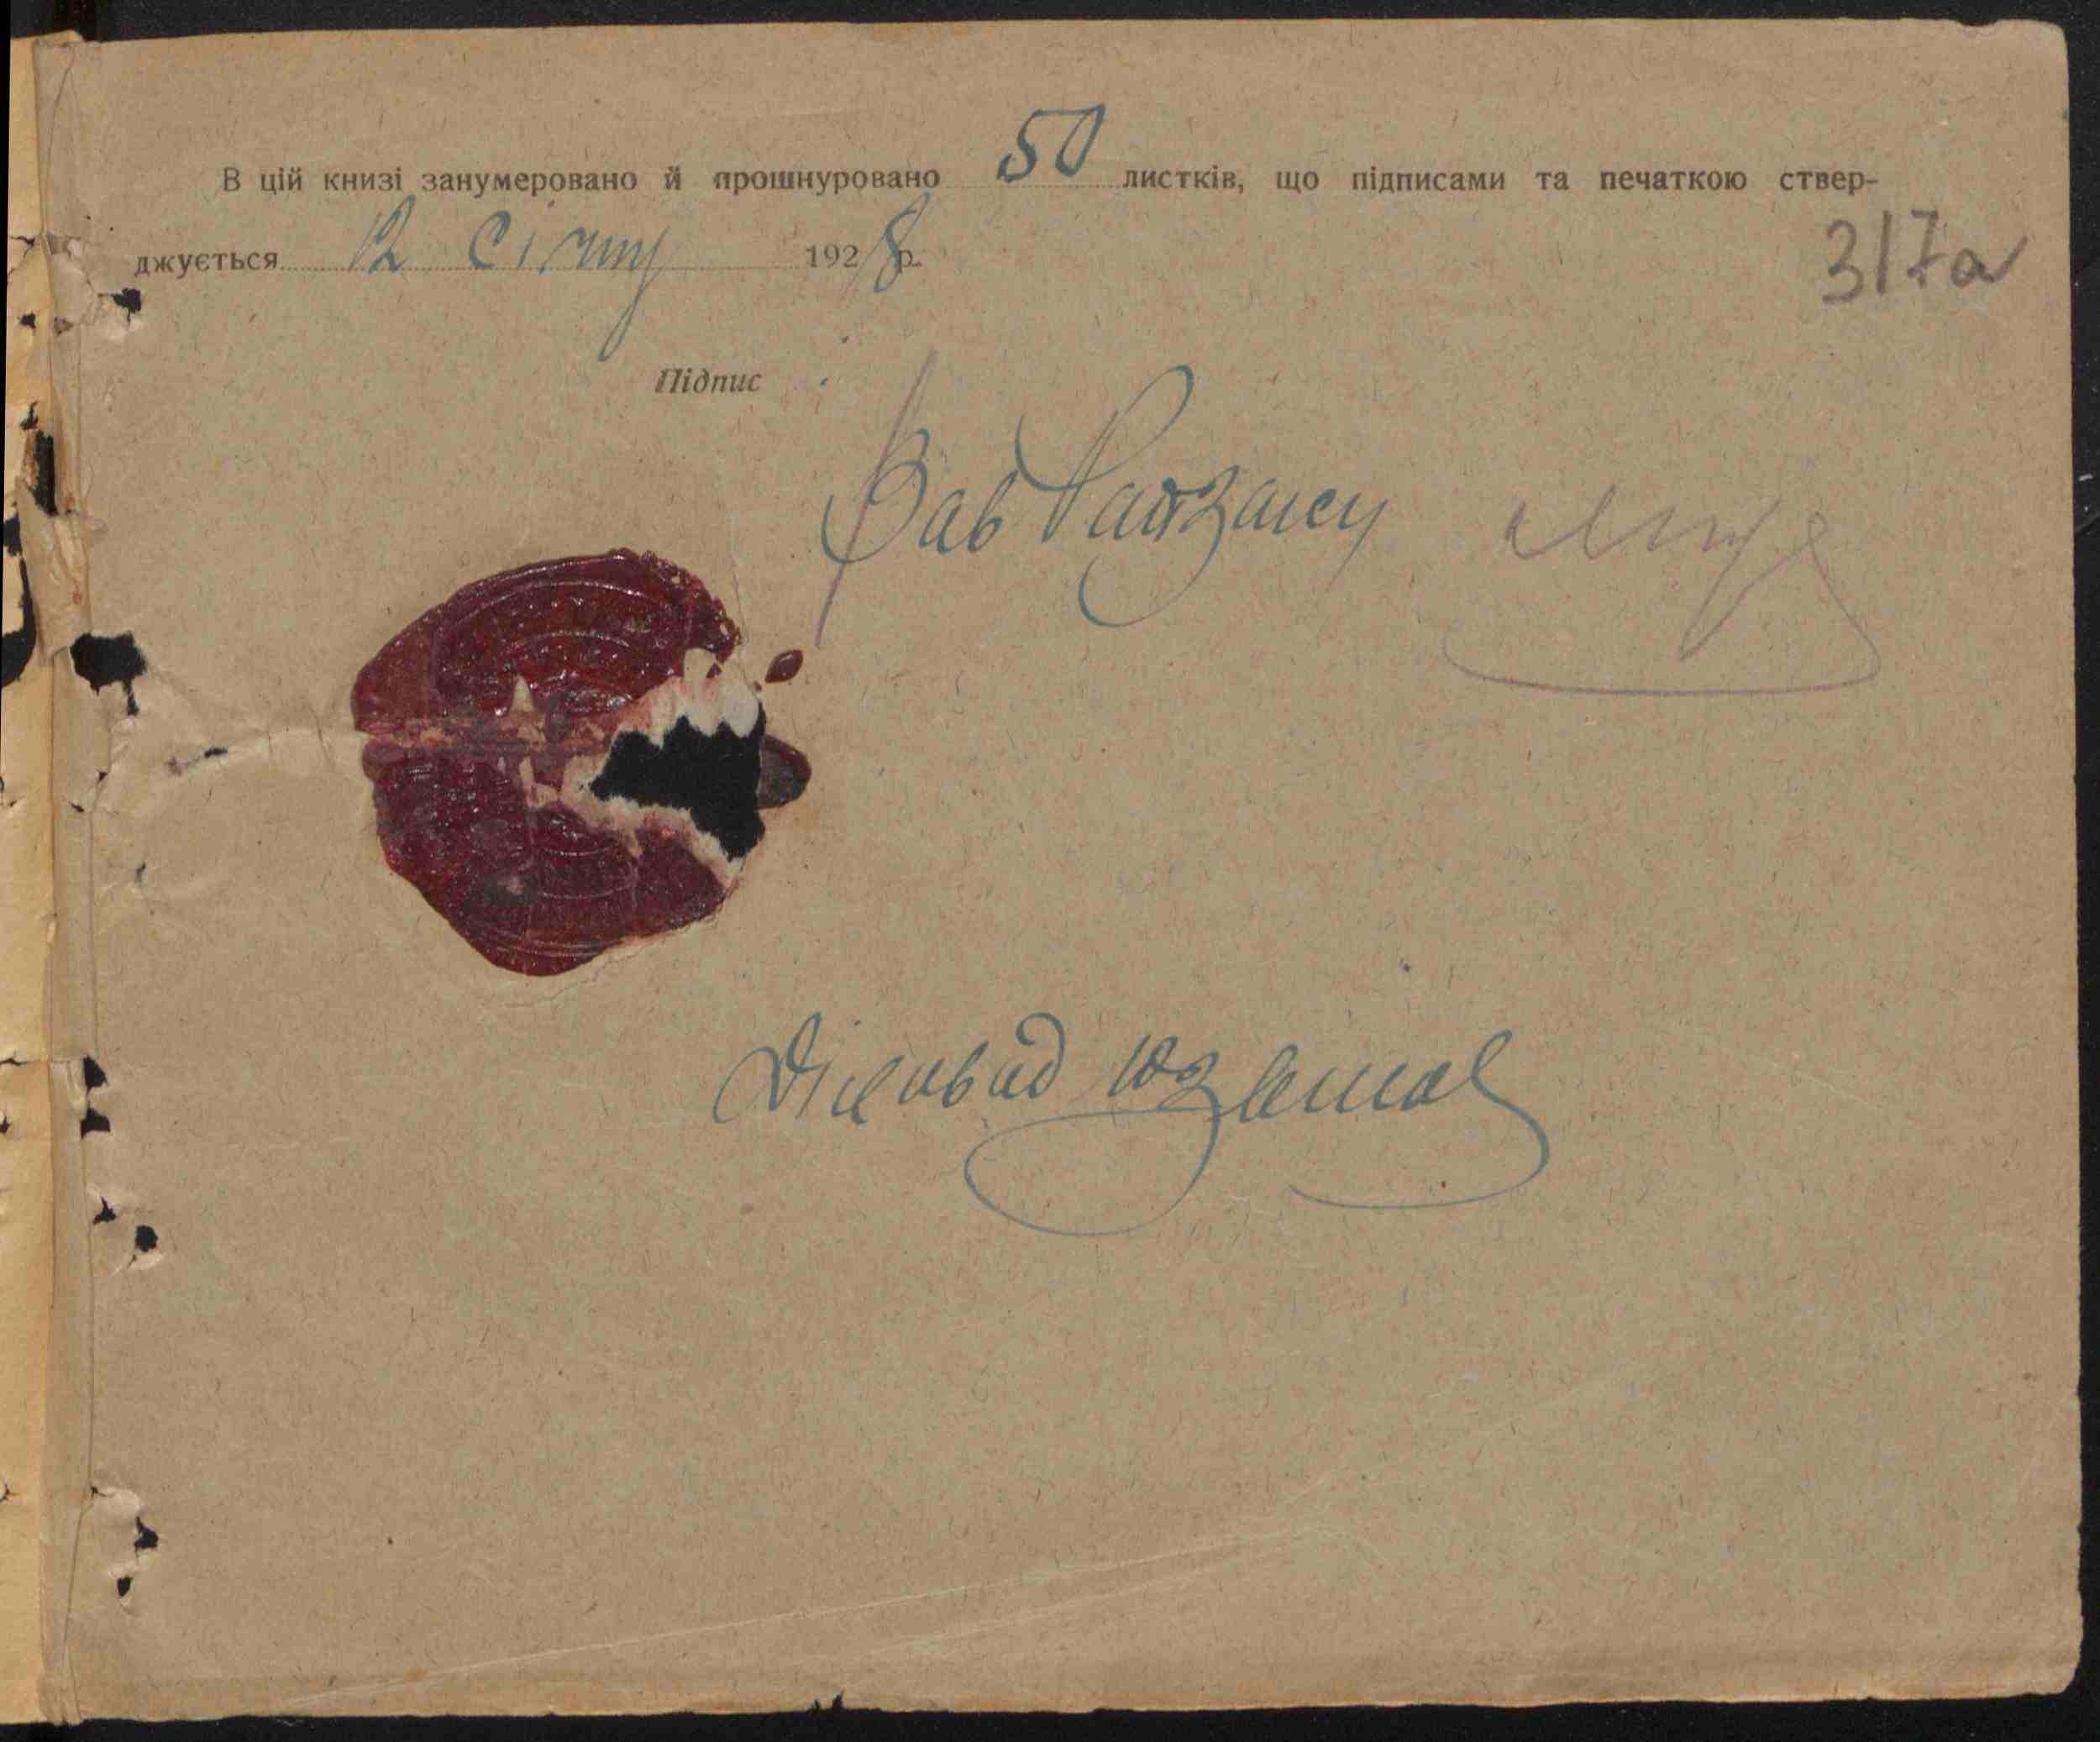 В цій книзі занумеровано й прошнуровано 50 листків, що підписами та печаткою ствер-
джується 12 Січня 1928 р.
317а
Підпис
Зав Райзагсу
Діловод